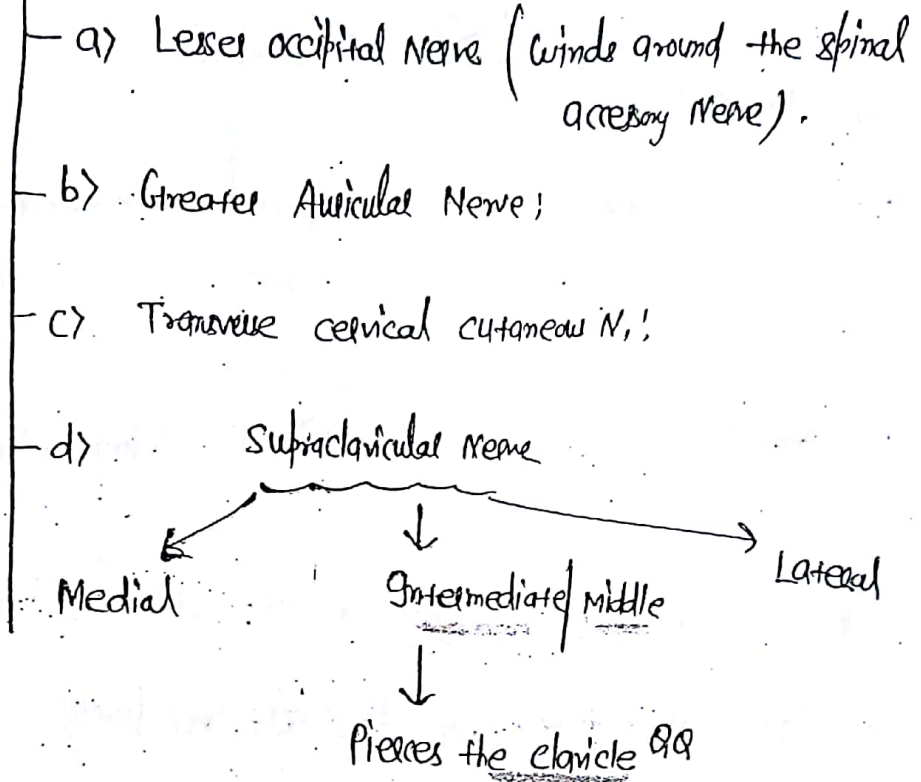 a) Lesser occipital Nerve (winds around the spinal
accesory Nerve).
b) Greater Auricular Nerve;
c) Transverse cervical cutaneous N,!
d) Supraclavicular Nerve
Medial Intermediate/Middle Lateral
Pierces the clavicle QQ